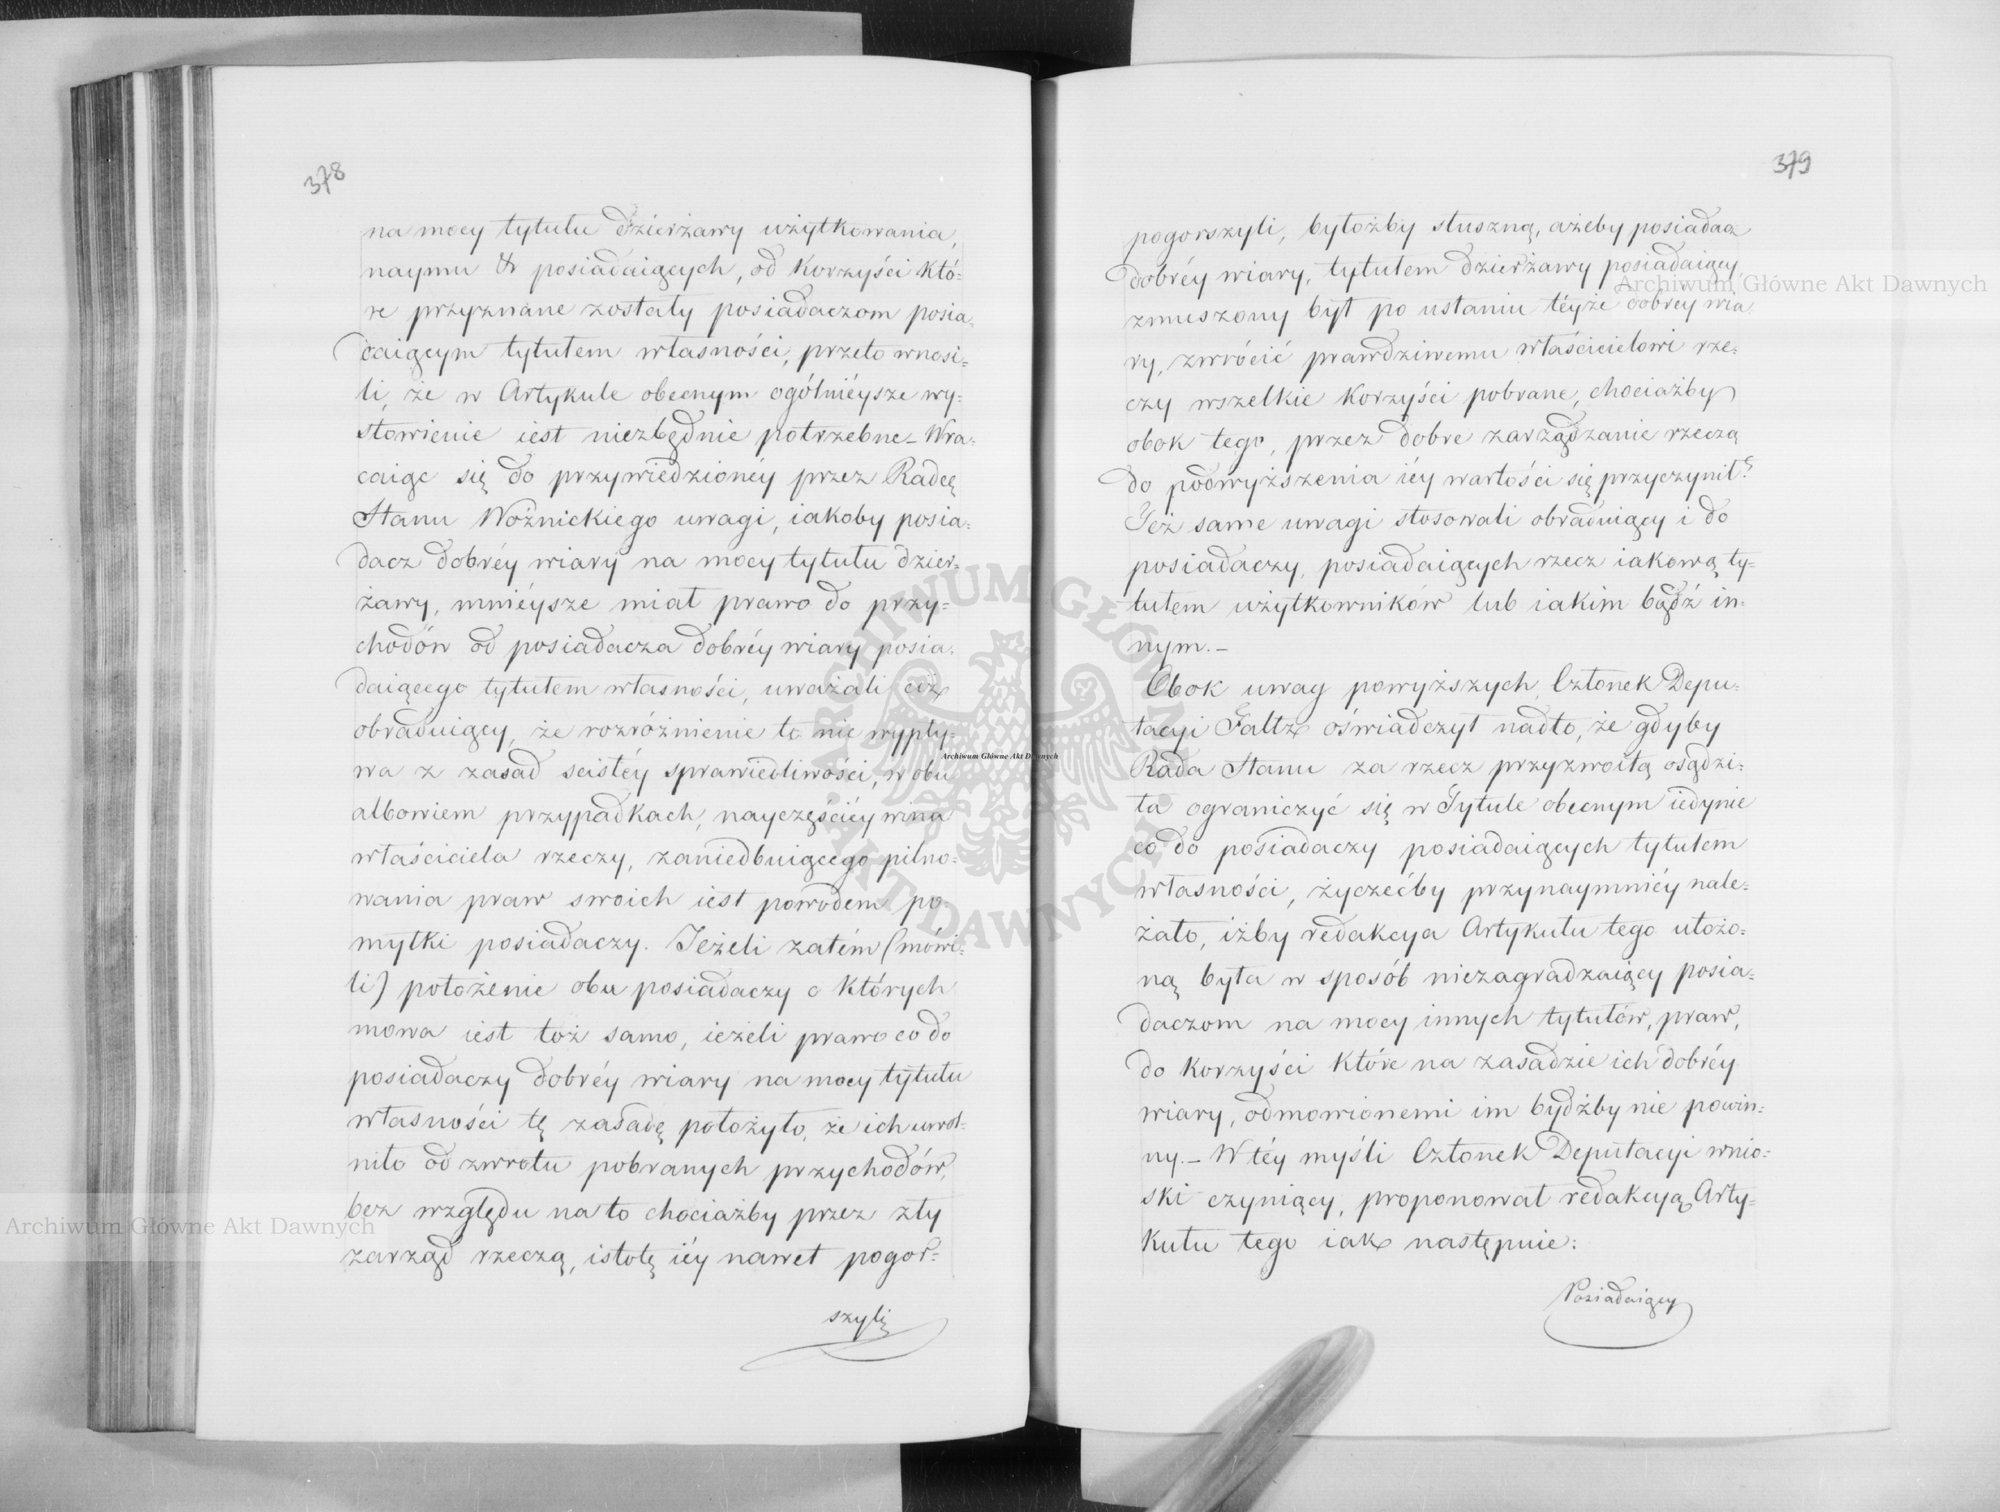 378
na mocy tytułu dzierżawy użytkowania,
naymu &c posiadaiących, od korzyści któ-
re przyznane zostały posiadaczom posia-
daiącym tytułem własności, przeto wnosi-
li, że w Artykule obecnym ogólnieysze wy-
słowienie iest niezbędnie potrzebne – Wra-
caiąc się do przywiedzionéy przez Radcę
Stanu Woźnickiego uwagi, iakoby posia-
dacz dobréy wiary na mocy tytułu dzier-
żawy, mnieysze miał prawo do przy-
chodów od posiadacza dobréy wiary posia-
daiącego tytułem własności, uważali ciż
obraduiący, że rozróżnienie to nie wypły-
wa z zasad scistéy sprawiedliwości, w obu
albowiem przypadkach, nayczęściéy wina
właściciela rzeczy, zaniedbuiącego pilno-
wania praw swoich iest powodem po-
myłki posiadaczy. Jeżeli zatém (mówi-
li) położenie obu posiadaczy o których
mowa iest toż samo, ieżeli prawo co do
posiadaczy dobréy wiary na mocy tytułu
własności tę zasadę położyło, że ich uwol-
niło od zwrotu pobranych przychodów,
bez względu na to chociażby przez zły
zarząd rzeczą, istotę iéy nawet pogor-
szyli
379
pogorszyli, byłożby słuszną, ażeby posiadacz
dobréy wiary, tytułem dzierżawy posiadaiący,
zmuszony był po ustaniu téyże dobrey wia-
ry, zwrócić prawdziwemu właścicielowi rze-
czy wszelkie korzyści pobrane, chociażby
obok tego, przez dobre zarządzanie rzeczą
do podwyższenia iéy wartości się przyczynił?
Też same uwagi stosowali obraduiący i do
posiadaczy, posiadaiących rzecz iakową ty-
tułem użytkowników lub iakim bądź in-
nym. –
Obok uwag powyższych, Członek Depu-
tacyi Faltz oświadczył nadto, że gdyby
Rada Stanu za rzecz przyzwoitą osądzi-
ła ograniczyć się w Tytule obecnym iedynie
co do posiadaczy posiadaiących tytułem
własności, życzećby przynaymniéy nale-
żało, iżby redakcya Artykułu tego ułożo-
ną była w sposób niezagradzaiący posia-
daczom na mocy innych tytułów, praw,
do korzyści które na zasadzie ich dobréy
wiary, odmowionemi im bydźby nie powin-
ny. – W téy myśli Członek Deputacyi wnio-
ski czyniący, proponował redakcyą Arty-
kułu tego iak następnie:
Posiadaiący
Archiwum Główne Akt Dawnych
Archiwum Główne Akt Dawnych
Archiwum Główne Akt Dawnych
ARCHIWUM GŁÓWNE AKT DAWNYCH